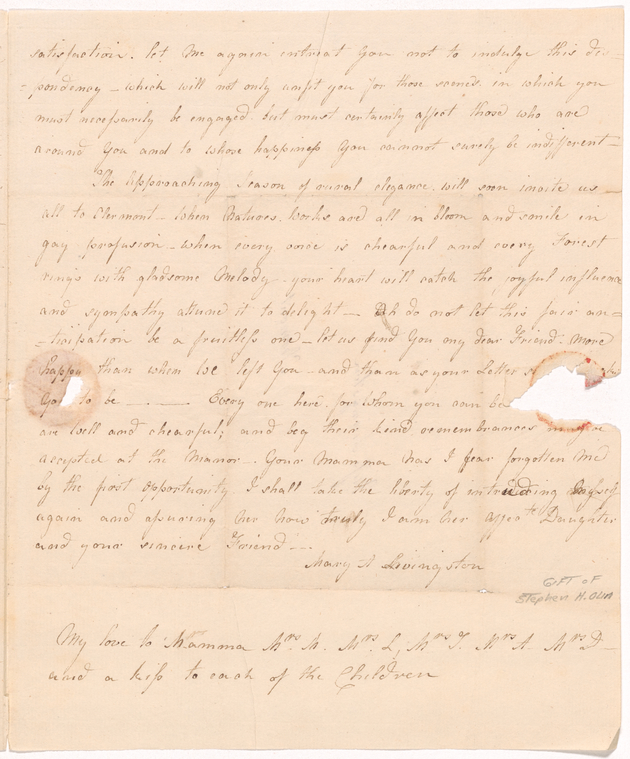 satisfaction. let me again entreat you not to indulge this des-
-pondency - which will not only unfit you for those scenes in which you
must necessarily be engaged. but must certainly affect those who are
around you and to whose happiness you cannot surely be indifferent -
The Approaching Season of rural elegance will soon invite us -
all to Clermont - When Natures Works are all in bloom and smile in
gay profusion - when every voice is chearful and every Forest
rings with gladsome Melody - your heart will catch the joyful influence
and sympathy attune it to delight - Ah do not let this fair an-
-ticipation be a fruitless one - let us find You my dear Friend. More
happy than when we left You - and than as your Letter
You to be - - - Every one here for whom you can be
are well and chearful; and beg their kind remembrances may be
accepted at the Manor - Your Mamma has I fear forgotten me
by the post opportunity I shall take the liberty of introducing myself
again and assuring her how truly I am her affecte Daughter
and your sincere Friend -
Mary A Livingston
GIFT OF
Stephen H. Olin
My love to Mamma Mrs. M. Mrs. L, Mrs T. Mrs A. Mrs D -
and a kiss to each of the Children